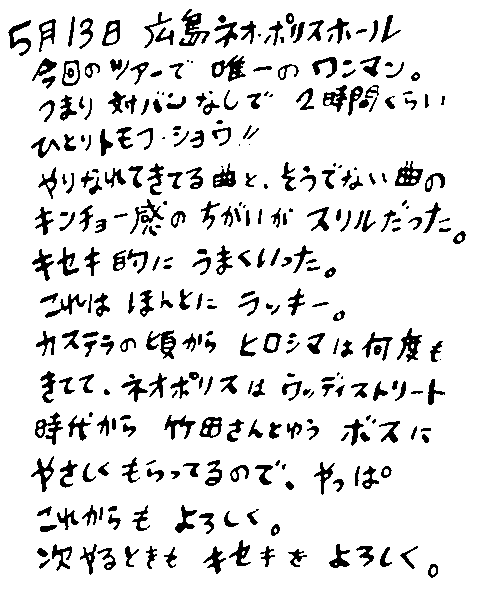 5月13日 広島ネオ・ポリスホール
今回のツアーで 唯一の ワンマン。
つまり 対バン なしで 2時間くらい
ひとりトモフ・ショウ!!
やりなれてきてる曲と、そうでない曲の
キンチョー感の ちがいが スリルだった。
キセキ的に うまくいった。
これは ほんとに ラッキー。
カステラの頃から ヒロシマは何度も
きてて、ネオポリスは ウッディストリート
時代から 竹田さんとゆう ボスに
やさしくもらってるので、やっぱ
これからも よろしく。
次やるときも キセキを よろしく。